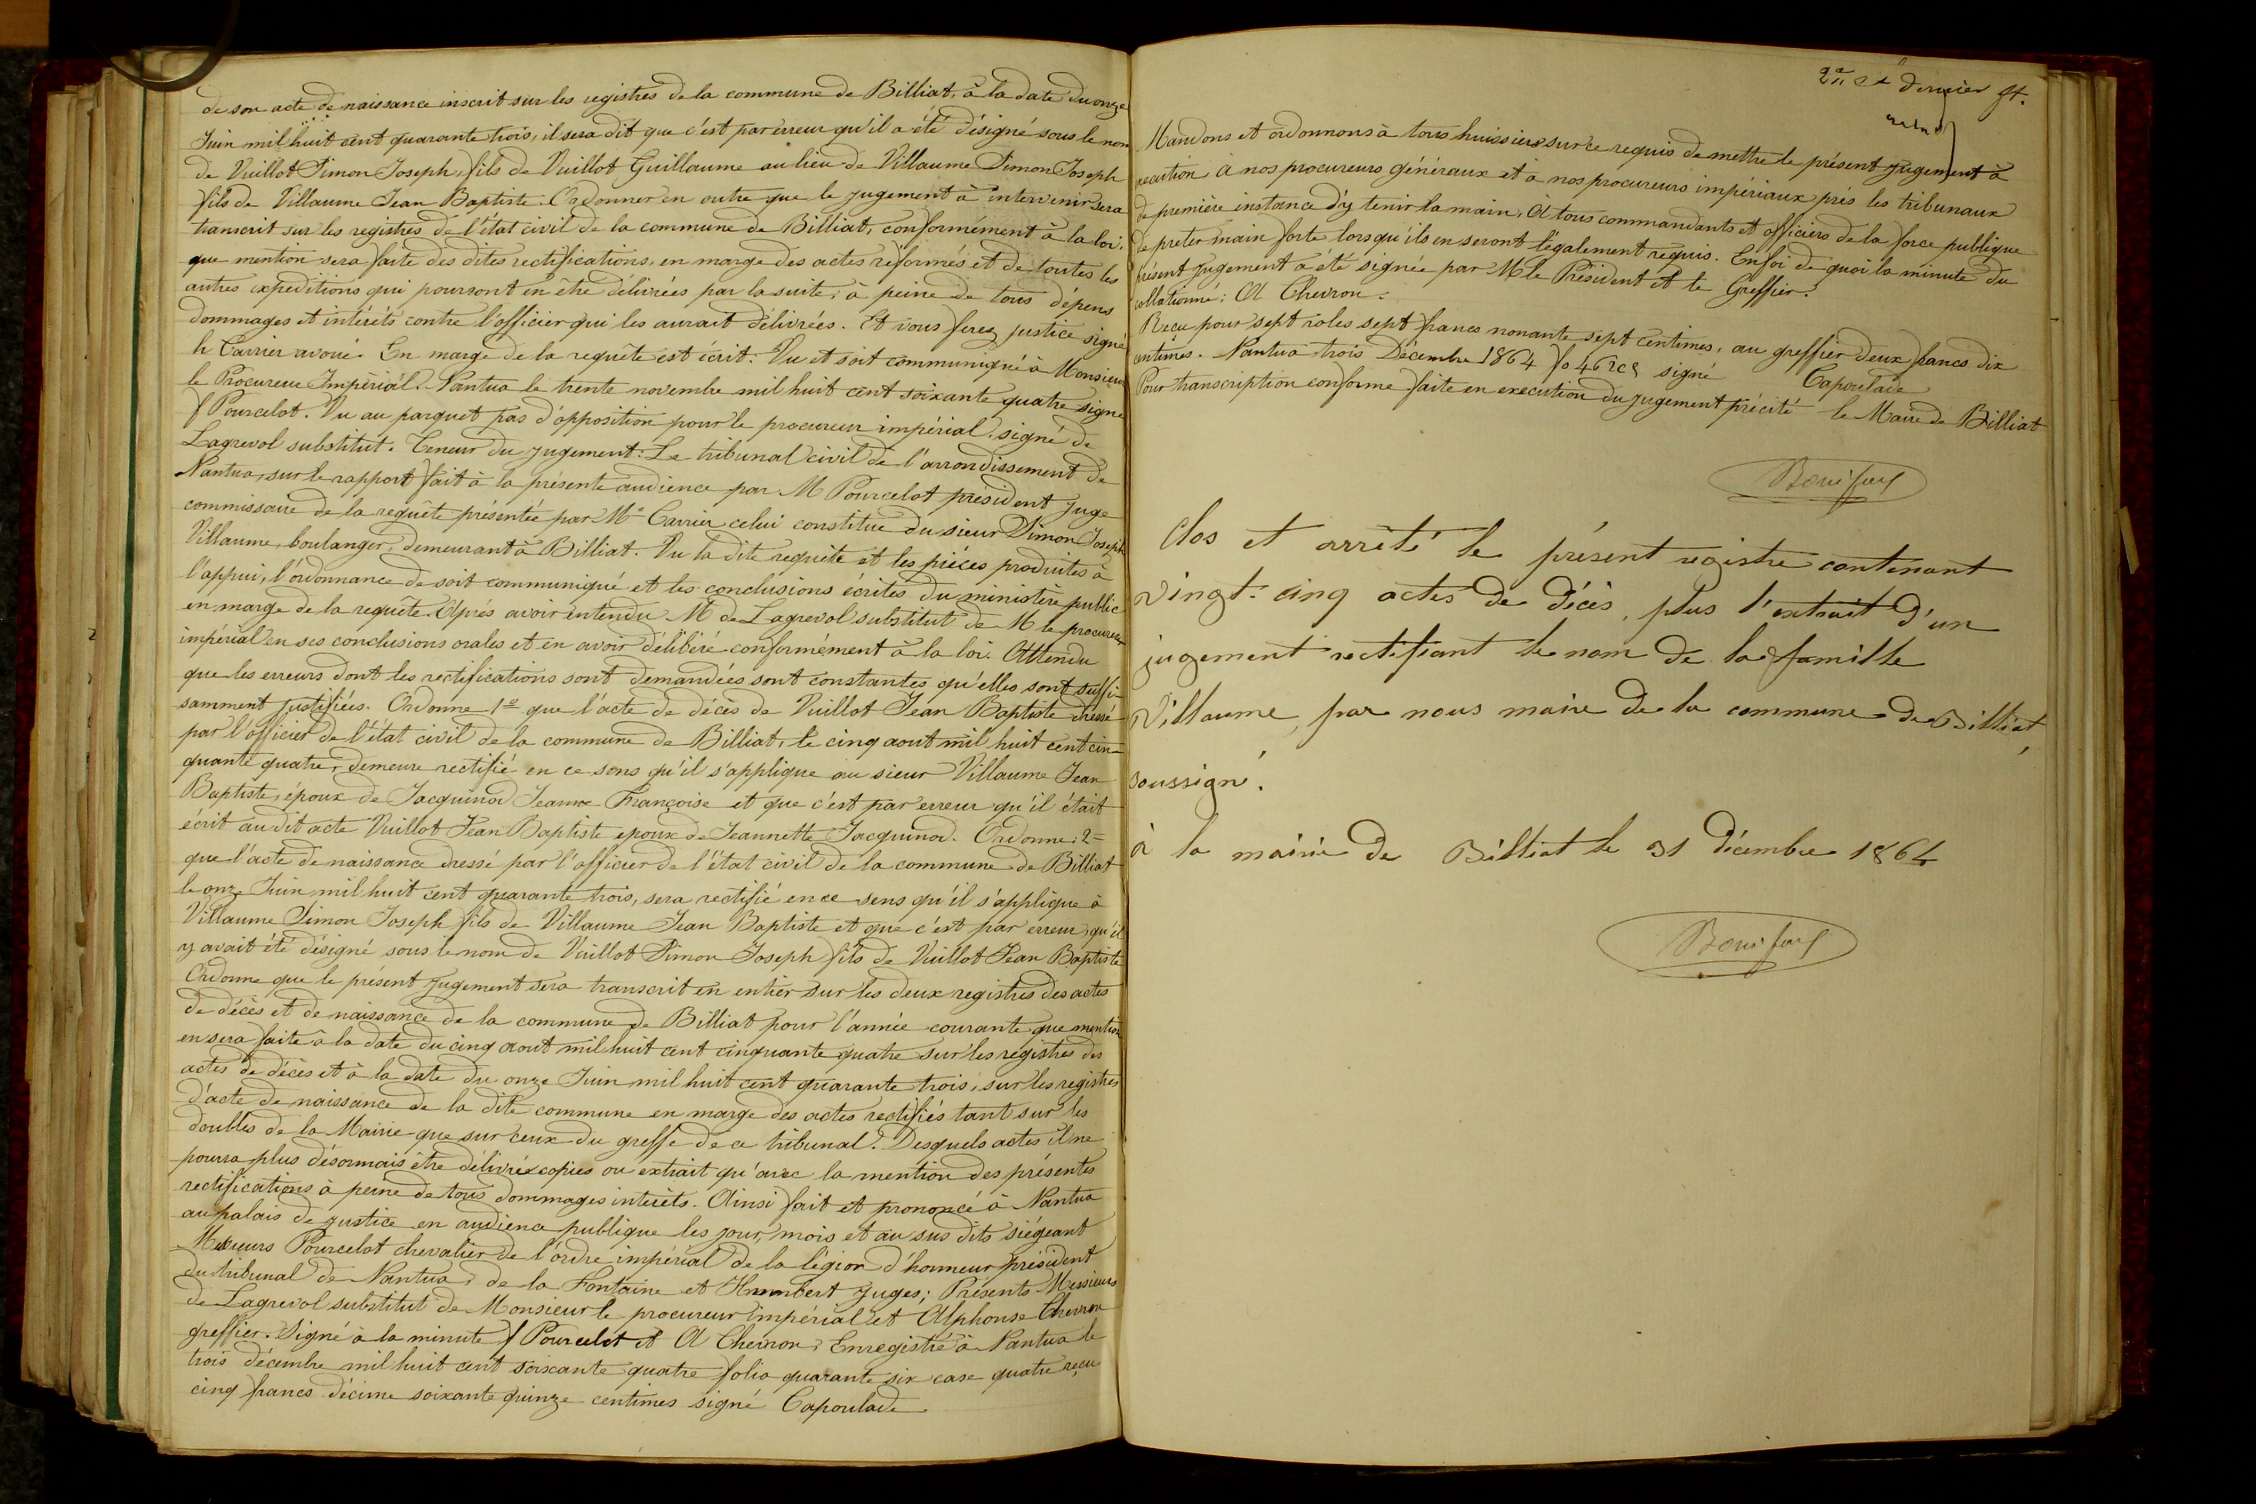 de son acte de naissance inscrit sur les registres de la commune de Billiat, à la date du onze
Juin mil huit cent quarante trois, il sera dit que c'est par erreur qu'il a été désigné sous le nom
de Vuillot Simon Joseph, fils de Vuillot Guillaume au lieu de Villaume Simon Joseph
fils de Villaume Jean Baptiste. Ordonner en outre que le jugement à intervenir sera
transcrit sur les registres de l'état civil de la commune de Billiat, conformément à la loi,
que mention sera faite des dites rectifications, en marge des actes réformés et de toutes les
autres expeditions qui pourront en être délivrées par la suite, à peine de tous dépens
dommages et intérêts contre l'officier qui les aurait délivrées. Et vous ferez justice signé
h Carrier avoué. En marge de la requête est écrit: Vu et soit communiqué à Monsieur
le Procureur Impérial. Nantua le trente novembre mil huit cent soixante quatre signé
f Pourcelot. Vu au parquet pas d'opposition pour le procureur impérial. signé de
Lagrevol substitut. Teneur du jugement: Le tribunal civil de l'arrondissement de
Nantua, sur le rapport fait à la présente audience par M Pourcelot président juge
commissaire de la requête présentée par Me Carrier celui constitué du sieur Simon Joseph
Villaume, boulanger, demeurant à Billiat. Vu la dite requête et les pièces produites à
l'appui, l'ordonnance de soit communiqué et les conclusions écrites du ministère public
en marge de la requête. Après avoir entendu M de Lagrevol substitut de M le procureur
impérial en ses conclusions orales et en avoir délibéré conformément à la loi. Attendu
que les erreurs dont les rectifications sont demandées sont constantes qu'elles sont suffi-
samment justifiées. Ordonne 1o que l'acte de décès de Vuillot Jean Baptiste dressé
par l'officier de l'état civil de la commune de Billiat, le cinq aout mil huit cent cin-
quante quatre, demeure rectifié en ce sens qu'il s'applique au sieur Villaume Jean
Baptiste, époux de Jacquinod Jeanne Françoise et que c'est par erreur qu'il était
écrit au dit acte Vuillot Jean Baptiste epoux de Jeannette Jacquinod. Ordonne: 2=
que l'acte de naissance dressé par l'officier de l'état civil de la commune de Billiat
le onze Juin mil huit cent quarante trois, sera rectifié en ce sens qu'il s'applique à
Villaume Simon Joseph fils de Villaume Jean Baptiste et que c'est par erreur, qu'il
y avait été désigné sous le nom de Vuillot Simon Joseph fils de Vuillot Jean Baptiste
Ordonne que le présent jugement sera transcrit en entier sur les deux registres des actes
de décès et de naissance de la commune de Billiat pour l'année courante, que mention
en sera faite à la date du cinq aout mil huit cent cinquante quatre sur les registres des
actes de décès et à la date du onze Juin mil huit cent quarante trois, sur les registres
d'acte de naissance de la dite commune en marge des actes rectifiés tant sur les
doubles de la Mairie que sur ceux du greffe de ce tribunal. Desquels actes il ne
pourra plus désormais être délivré copies ou extrait qu'avec la mention des présentes
rectifications à peine de tous dommages intérêts. Ainsi fait et prononcé à Nantua
au palais de justice en audience publique les jour, mois et an sus dits siégeant
Messieurs Pourcelot chevalier de l'ordre impérial de la légion d'honneur président
du tribunal de Nantua, de la Fontaine et Humbert juges; Présents Messieurs
de Lagrevol substitut de Monsieur le procureur impérial et Alphonse Chevron
greffier. Signé à la minute f Pourcelot et A Chevron. Enregistré à Nantua le
trois décembre mil huit cent soixante quatre folio quarante six case quatre reçu
cinq francs décime soixante quinze centimes signé Capoulade
2e et dernier ft.
Mandons et ordonnons à tous huissiers sur ce requis de mettre le présent jugement à
execution à nos procureurs généraux et à nos procureurs impériaux près les tribunaux
de première instance d'y tenir la main, A tous commandants et officiers de la force publique
de preter main forte lorsqu'ils en seront légalement requis. En foi de quoi la minute du
présent jugement a été signée par M le Président et le Greffier.
collationné: A Chevron.
Reçu pour sept roles sept francs nonante sept centimes, au greffier deux francs dix
centimes. Nantua trois Décembre 1864 fo 46 signé Capoulade
Pour transcription conforme faite en execution du jugement précité le Maire de Billiat
Clos et arrêté le présent registre contenant
vingt-cinq actes de décès, plus l'extrait d'un
jugement rectifiant le nom de la famille
Villaume, par nous maire de la commune de Billiat,
soussigné.
à la mairie de Billiat le 31 décembre 1864